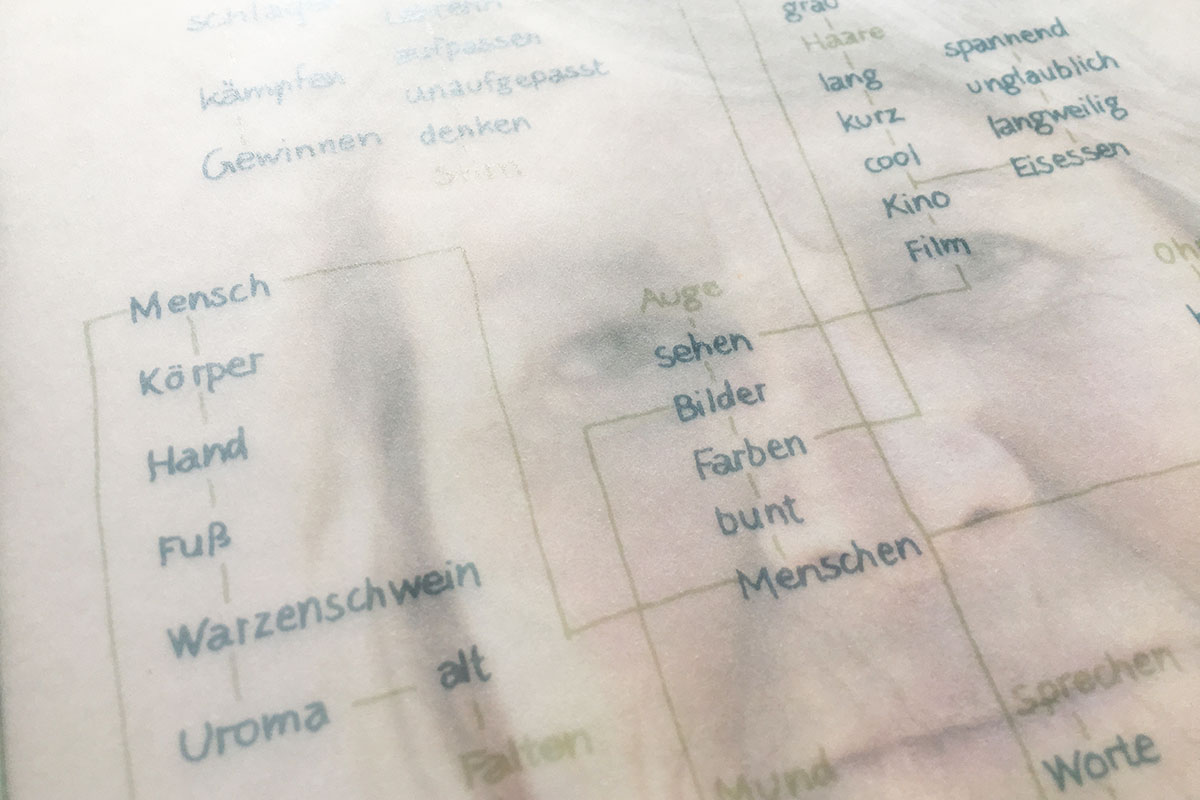 schlagen
kämpfen
Gewinnen
aufpassen
unaufgepasst
denken
Stirn
grau
Haare
lang
kurz
cool
Kino
Film
spannend
unglaublich
langweilig
Eisessen
Mensch
Körper
Hand
Fuß
Warzenschwein
Uroma
alt
Falten
Auge
sehen
Bilder
Farben
bunt
Menschen
Mund
sprechen
Worte